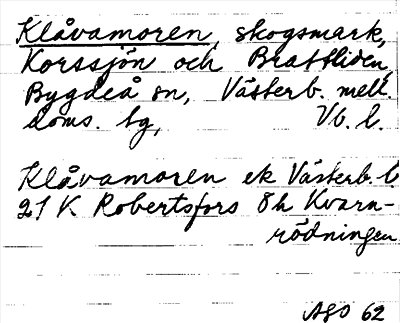 Klåvamoren, skogsmark,
Korssjön och Brattliden,
Bygdeå sn, Västerb. mell.
doms. tg, Vb. l.
Klåvamoren ek Västerb. l.
21 K Robertsfors 8h Kvarn-
rödningen
AGO 62